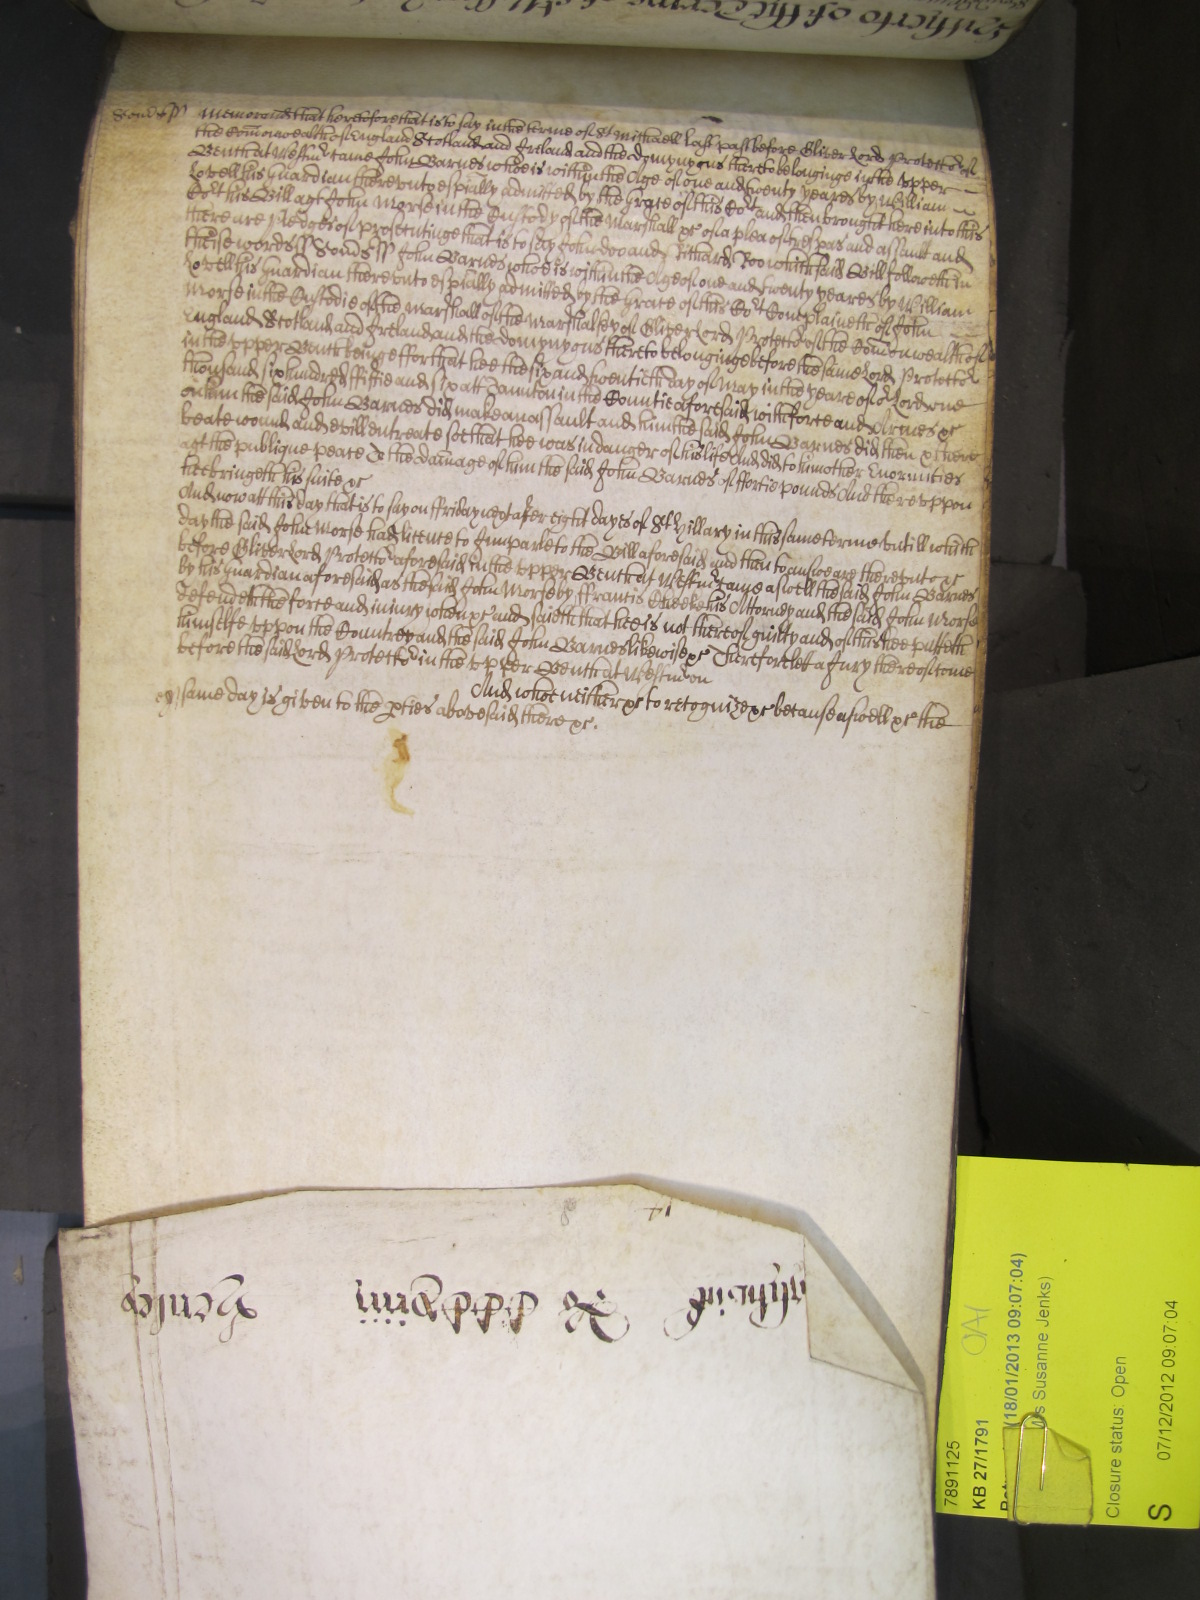 Memorand that heretofore that is to say in the terme of St Michaell last past before Oliver Lord Protector of
the Comonwealth of England Scotland and Ireland and the domynyons thereto belonginge in the upper
Bench at Westmr came John Barnes whoe is within the Age of one and twenty yeares by William
Lovell his Guardian therevnto espially admitted by the Grace of this Cort and then brought here into this
Cort his Bill agt John Morse in the Custody of the Marshall &c of a plea of trespas and assault and
there are pledges of prosecutinge that is to say John Doo and Richard Roo which said Bill followeth in
theise words ss John Barnes whoe is within the Age of one and twenty yeares by William
Lovell his Guardian therevnto espially admitted by the Grace of this Cort Complaineth of John
Morse in the Custodie of the Marshall of the Marshalsey of Oliver Lord Protector of the Comonwealth of
England Scotland and Ireland and the domynyons thereto belonginge before the same Lord Protector
in the upper Bench beinge for that hee the six and twentieth day of May in the yeare of or Lord one
thousand six hundred fiftie and six att in the Countie aforesaid with force and Armes &c
on him the said John Barnes did make an assault and him the said John Barnes did then & there
beate wound and evill entreate soe that hee was in danger of his life And did to him other Enormities
agt the publique peace To the damage of him the said John Barnes of fortie pounds And therevppon
hee bringeth his suite &c
And now att this day that is to say on ffriday next after eight dayes of St Hillary in this same terme vntill which
day the said John Morse had licence to Imparle to the Bill aforesaid and then to answeare therevnto &c
before Oliver Lord Protector aforesaid in the upper Bench at Westmr came aswell the said John Barnes
by his Guardian aforesaid as the said John Morse by ffrancis his Attorney and the said John Morse
defendeth the force and iniury when &c and saieth that hee is not thereof guilty and of this hee putteth
himselfe vppon the Countrey and the said John Barnes likewise &c Therefore let a Jury thereof come
before the said Lord Protector in the upper Bench at Westm on
And whoe neither &c to recognize &c because aswell &c the
same day is given to the pties abovesaid there &c.
Henley
7891125
KB 27/1791
(18/01/2013 09:07:04)
s Susanne Jenks)
Closure status: Open
S
07/12/2012 09:07:04